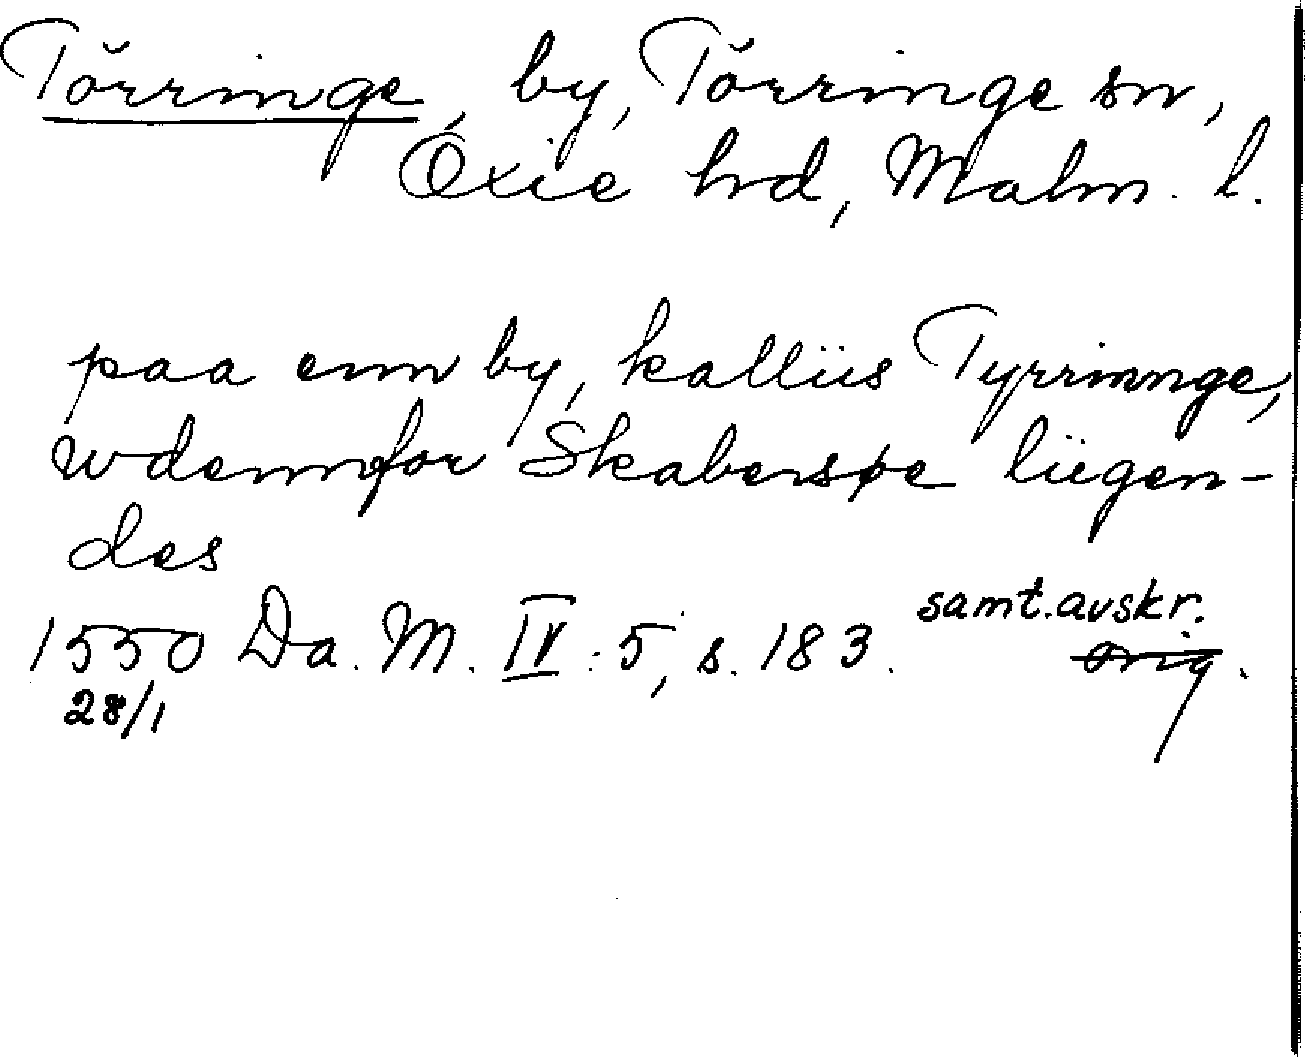 Törringe, by, Törringe sn,
Oxie hd, Malm. l.
paa enn by, kalliis Tyrrinnge,
wdennfor Skabersøe liigen-
des
samt. avskr.
1550 Da. M. IV: 5, s. 183. orig.
28/1